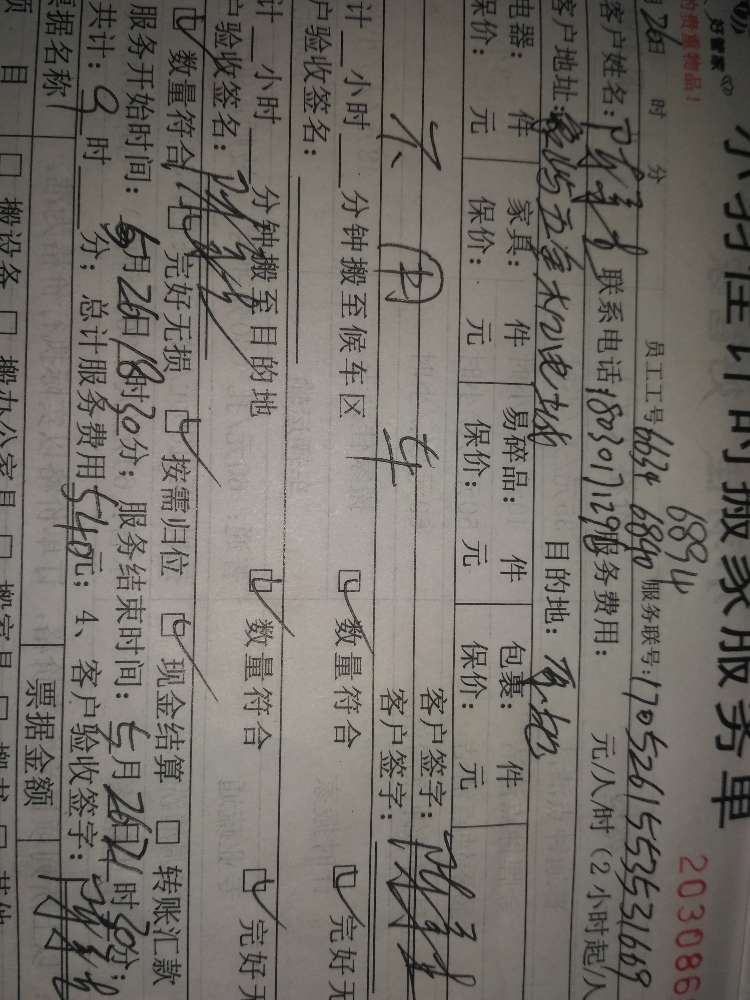 好管家
的贵重物品！
小羽佳计时搬家服务单
203086
月26日 时 分 员工工号 6634 6840 6894 服务联号:170526155353 1669
客户姓名: 联系电话:18030171298 服务费用: 元/人/时（2小时起/人
客户地址: 目的地:
电器: 件 家具: 件 易碎品: 件 包裹: 件
保价: 元 保价: 元 保价: 元 保价: 元
不 用 车 客户签字:
客户签字:
计 小时 分钟搬至候车区 数量符合 完好无
户验收签名:
计 小时 分钟搬至目的地 数量符合 完好无
户验收签名:
数量符合 完好无损 按需归位 现金结算 转账汇款
服务开始时间: 5月26日18时30分; 服务结束时间: 5月26日21时30分;
共计: 9时 分; 总计服务费用 540元; 4、客户验收签字:
票据名称 票据金额
项目 搬设备 搬办公家具 搬家具 其他